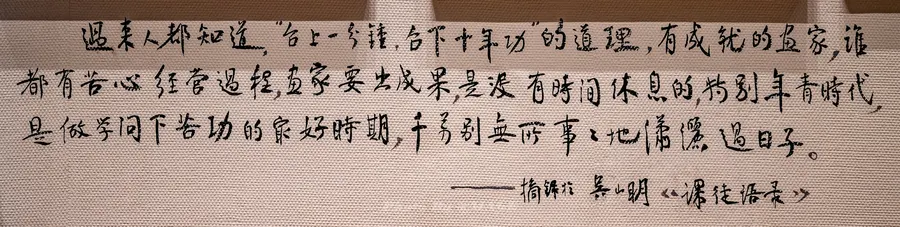 過来人都知道,"台上一分鐘,台下十年功"的道理,有成就的画家,谁
都有苦心经营過程,画家要出成果,是没有時间休息的,特别年青時代,
是做学问下苦功的最好時期,千万别無所事事地潇灑過日子。
——摘録於 吴山明《课徒语录》